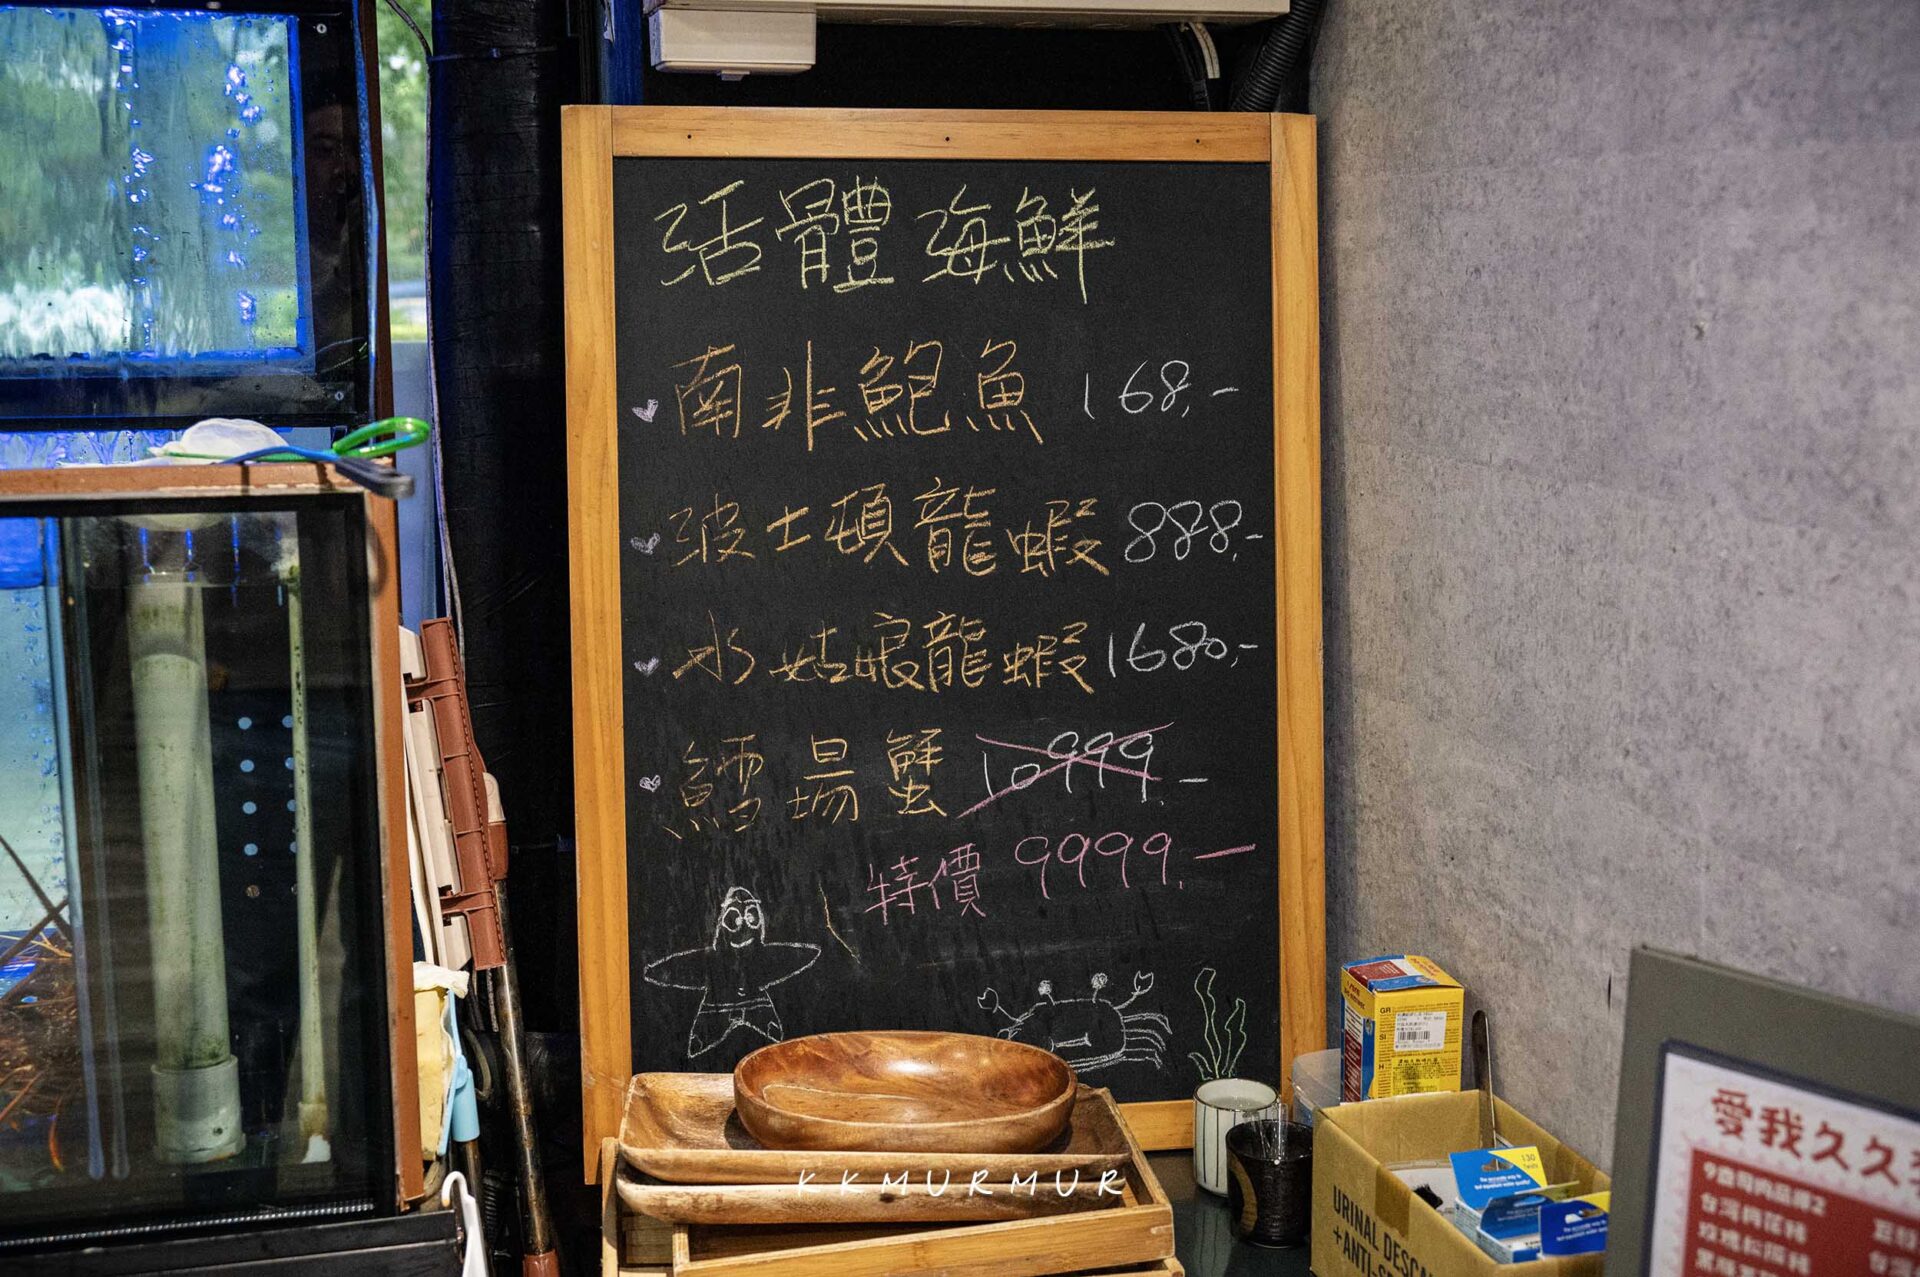 活體海鮮
南非鮑魚 168.-
波士頓龍蝦 888.-
水姑娘龍蝦 1680.-
鱈場蟹 10999.-
特價 9999.-
KKMURMUR
URINAL DESCA
+ANTI-S
130
GR
SI
愛我久久